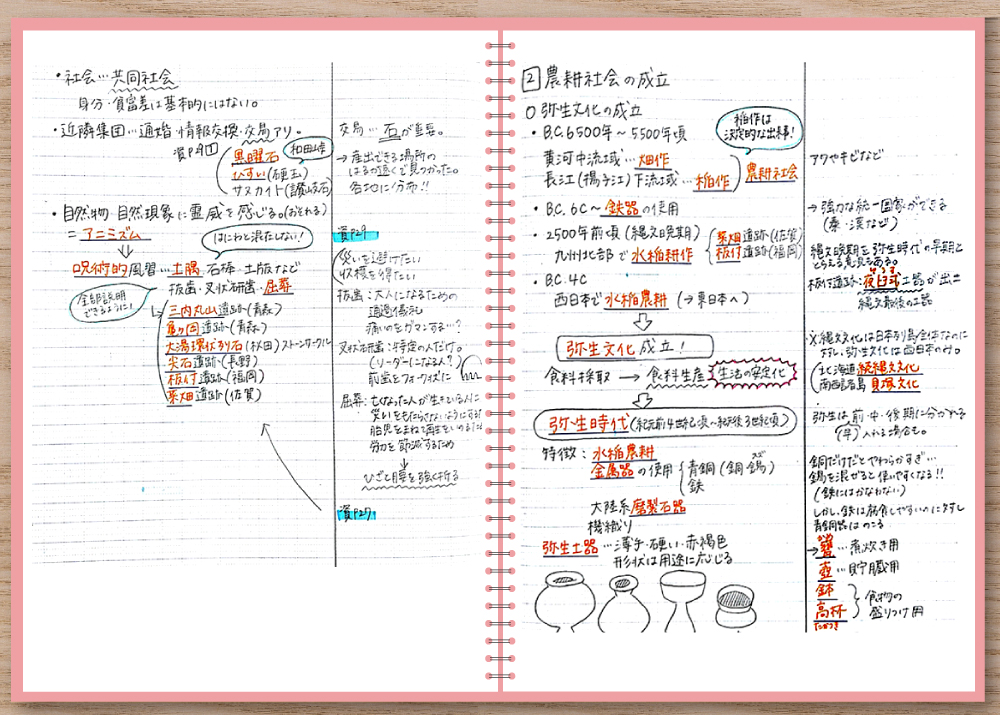 ・社会…共同社会
身分・貧富差は基本的にはない。
・近隣集団…通婚・情報交換・交易アリ。
資P29①
黒曜石
和田峠
ひすい(硬玉)
サヌカイト(讃岐石)
・自然物・自然現象に霊威を感じる。(おそれる)
=アニミズム
はにわと混在しない!
呪術的風習…土偶・石棒・土版など
抜歯・叉状研歯・屈葬
全部説明できるように!
三内丸山遺跡(青森)
亀ヶ岡遺跡(青森)
大湯環状列石(秋田)ストーンサークル
尖石遺跡(長野)
板付遺跡(福岡)
菜畑遺跡(佐賀)
交易…石が重要。
→産出できる場所の
はるか遠くで見つかった。
各地に分布!!
資P29
災いを避けたい
収穫を得たい
抜歯:大人になるための
通過儀礼
痛いのをガマンする…?
叉状研歯:特定の人だけ。
(リーダーになる人?)
前歯をフォーク状に
屈葬:亡くなった人が生きている人に
災いをもたらさないようにする
胎児をまねて再生をいのるため
労力を節減するため
ひざと腰を強く折る
資P27
2 農耕社会の成立
○弥生文化の成立
・B.C.6500年~5500年頃
稲作は
決定的な出来事!
黄河中流域…畑作
長江(揚子江)下流域…稲作
農耕社会
・B.C.6C~鉄器の使用
・2500年前頃(縄文晩期)
九州北部で水稲耕作
菜畑遺跡(佐賀)
板付遺跡(福岡)
・B.C.4C
西日本で水稲農耕(→東日本へ)
弥生文化成立!
食料採取→食料生産
生活の安定化
弥生時代(紀元前4世紀頃~紀元後3世紀頃)
特徴:水稲農耕
金属器の使用
青銅(銅・錫)
スズ
鉄
大陸系磨製石器
機織り
弥生土器…薄手・硬い・赤褐色
形状は用途に応じる
アワやキビなど
→強力な統一国家ができる
(秦・漢など)
縄文晩期を弥生時代の早期と
とらえる意見もある。
板付遺跡:夜臼式土器が出土
縄文最後の土器
※縄文文化は日本列島全体なのに
対し、弥生文化は西日本のみ。
北海道 続縄文文化
南西諸島 貝塚文化
弥生は前・中・後期に分かれる
(早)入れる場合も。
銅だけだとやわらかすぎ…
錫を混ぜると使いやすくなる!!
(鉄にはかなわない)
しかし、鉄は腐食しやすいのに対し
青銅器はのこる
→甕…煮炊き用
壺…貯蔵用
鉢
高杯
たかつき
食物の
盛りつけ用